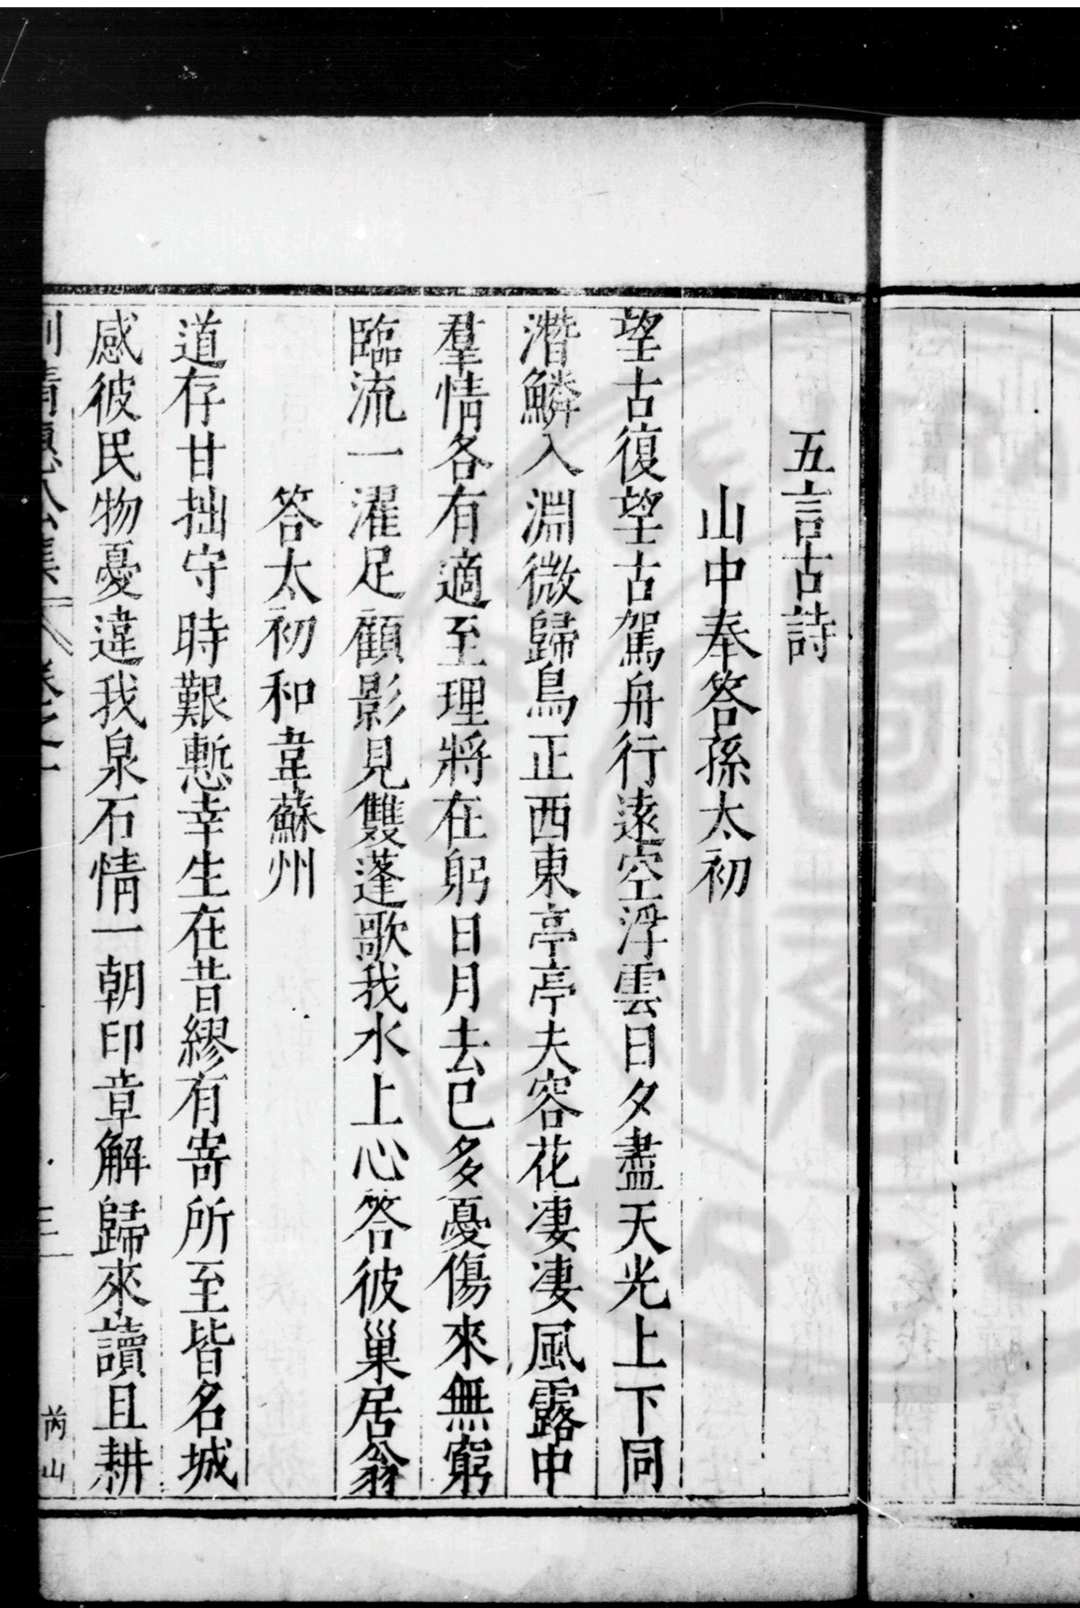 五言古詩
山中奉答孫太初
望古復望古駕舟行遠空浮雲日夕盡天光上下同
潛鱗入淵微歸鳥正西東亭亭夫容花凄凄風露中
羣情各有適至理將在躬日月去已多憂傷來無窮
臨流一濯足顧影見雙蓬歌我水上心答彼巢居翁
答太初和韋蘇州
道存甘拙守時艱慙幸生在昔繆有寄所至皆名城
感彼民物憂違我泉石情一朝印章解歸來讀且耕
劉清惠公集 卷之一 三 芮山